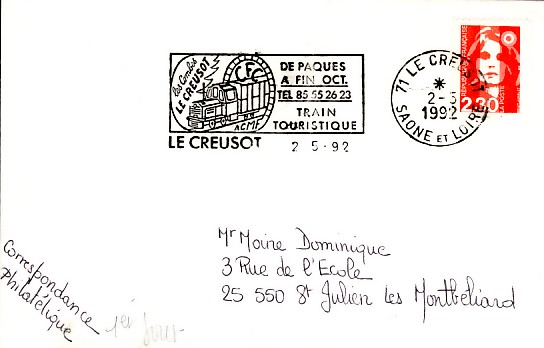 les Combes
LE CREUSOT
CFC
ACMF
DE PAQUES
A FIN OCT.
TEL 85 55 26 23
TRAIN
TOURISTIQUE
LE CREUSOT 2 5 - 92
71 LE CREUSOT
*
2-5
1992
SAONE ET LOIRE
REPUBLIQUE FRANÇAISE
2,30
LA POSTE
Mr Moire Dominique
3 Rue de l'Ecole
25 550 St Julien les Montbéliard
Correspondance
Philatélique
1er Jour